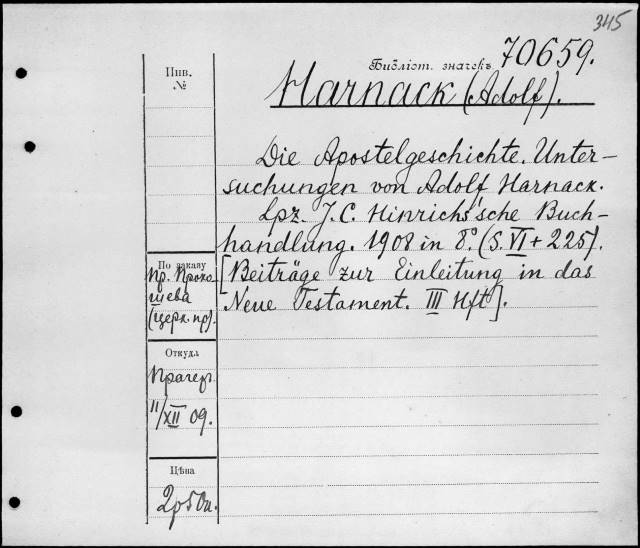 345
Библіот. значекъ 70659.
Инв.
№
Harnack (Adolf).
Die Apostelgeschichte. Unter-
suchungen von Adolf Harnack.
Lpz. J. C. Hinrichs'sche Buch-
handlung. 1908 in 8°. (S. VI + 225).
[Beiträge zur Einleitung in das
Neue Testament. III Hft].
По заказу
Пр. Проко
шева
(церк. пр).
Откуда
Прагер.
11/XII 09.
Цѣна
2р50к.